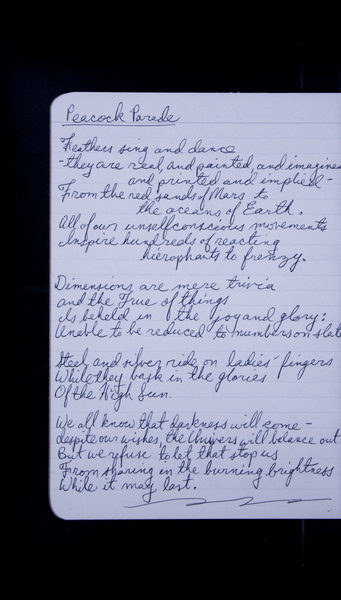 Peacock Parade
Feathers sing and dance
-they are real, and painted, and imagined
and printed and implied-
From the red sands of Mars to
the oceans of Earth.
All of our unselfconscious movements
Inspire hundreds of reacting
hierophants to frenzy.
Dimensions are mere trivia
and the True of things
Is beheld in the joy and glory:
Unable to be reduced to numbers on slate
Steel and silver ride on ladies' fingers
While they bask in the glories
Of the High Sun.
We all know that darkness will come-
despite our wishes, the Univers will balance out
But we refuse to let that stop us
From sharing in the burning brightness
While it may last.